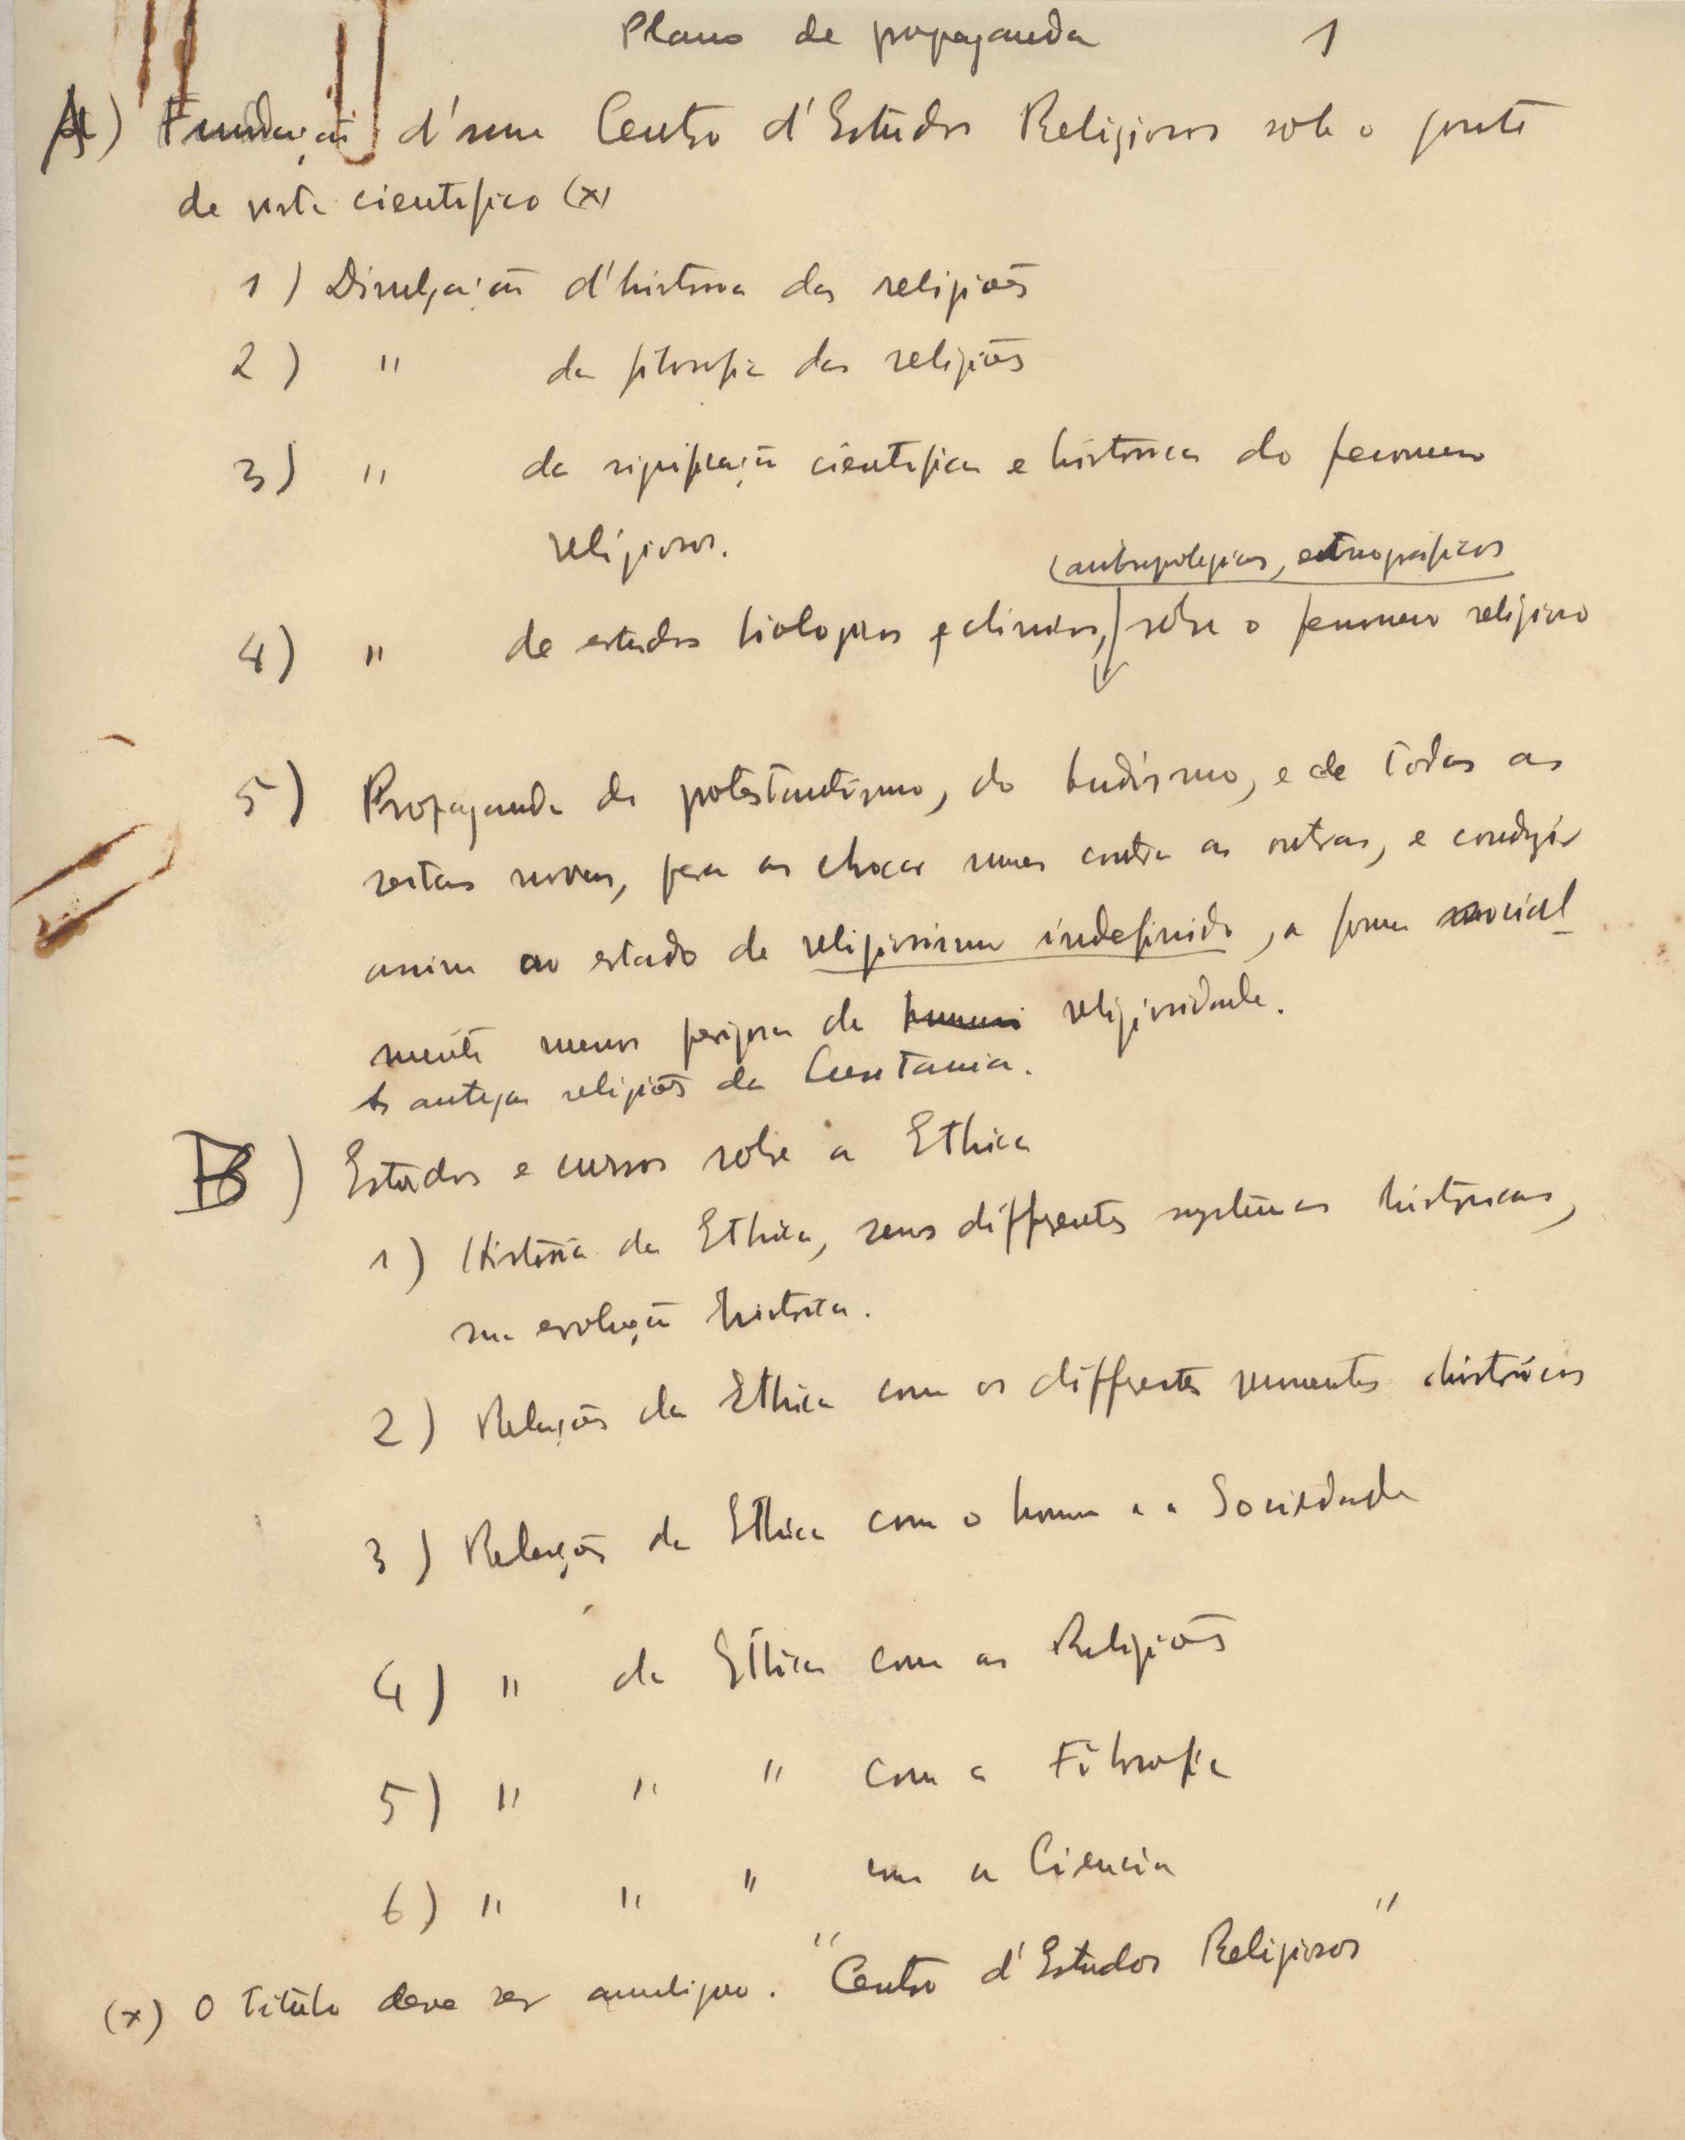 Plano de propaganda 1
A) Fundação d'um Centro d'Estudos Religiosos sob o ponto
de vista cientifico (x)
1) Divulgação d'historia das religiões
2) " da filosofia das religiões
3) " da significação cientifica e historica do fenomeno
religioso.
(antropologicos, etnograficos
4) " de estudos biologicos e clinicos, sobre o fenomeno religioso
5) Propaganda do protestantismo, do budismo, e de todas as
seitas novas, para as chocar umas contra as outras, e conduzir
assim ao estado de religiosismo indefinido, a forma social
mente menos perigosa de religiosidade.
As antigas religiões da Lusitania.
B) Estudos e cursos sobre a Ethica
1) Historia da Ethica, seus differentes systemas historicos,
sua evolução historica.
2) Relações da Ethica com os differentes momentos historicos
3) Relações da Ethica com o homem e a Sociedade
4) " da Ethica com as Religiões
5) " " " com a Filosofia
6) " " " com a Ciencia
(x) O titulo deve ser ambiguo. "Centro d'Estudos Religiosos"